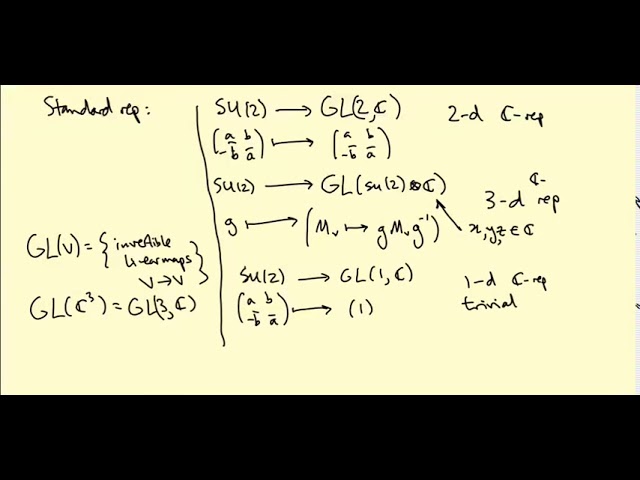 Standard rep:
SU(2) ⟶ GL(2,ℂ)
2-d ℂ-rep
(a b
-b̄ ā) ⟼ (a b
-b̄ ā)
SU(2) ⟶ GL(su(2)⊗ℂ)
3-d ℂ-rep
g ⟼ (Mᵥ ↦ g Mᵥ g⁻¹)
x,y,z ∈ ℂ
GL(V) = {invertible
linear maps
V → V}
GL(ℂ³) = GL(3,ℂ)
SU(2) ⟶ GL(1,ℂ)
1-d ℂ-rep
trivial
(a b
-b̄ ā) ⟼ (1)